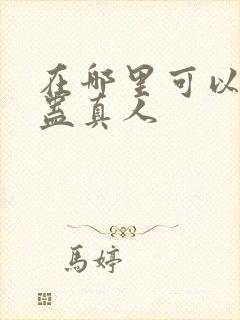 在哪里可以
盖真人
馬婷